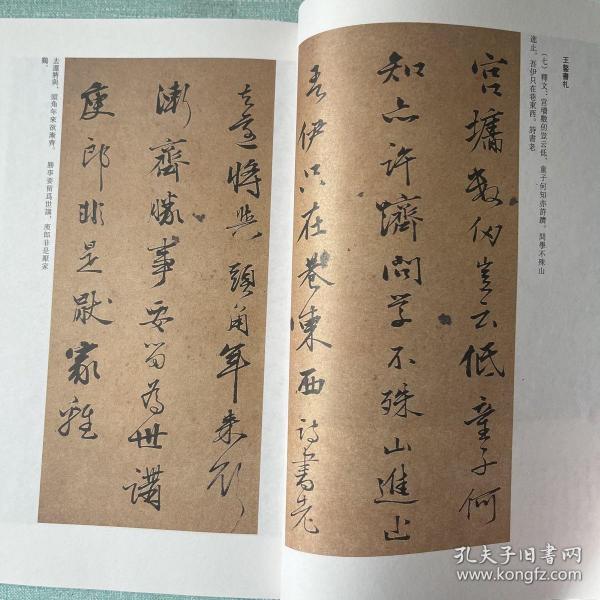 王鏊書札
（七）釋文：宫墻數仞豈云低，童子何知亦許躋。問學不殊山
進止，吾伊只在巷東西。詩書老
宫墻數仞豈云低童子何
知亦許躋問學不殊山進止
吾伊只在巷東西詩書老
去還將與頭角年來欲
漸齊勝事要留為世講
庾郎非是厭家雞
去還將與，頭角年來欲漸齊。 勝事要留爲世講，庾郎非是厭家
鷄。
孔夫子旧书网
www.kongfz.com